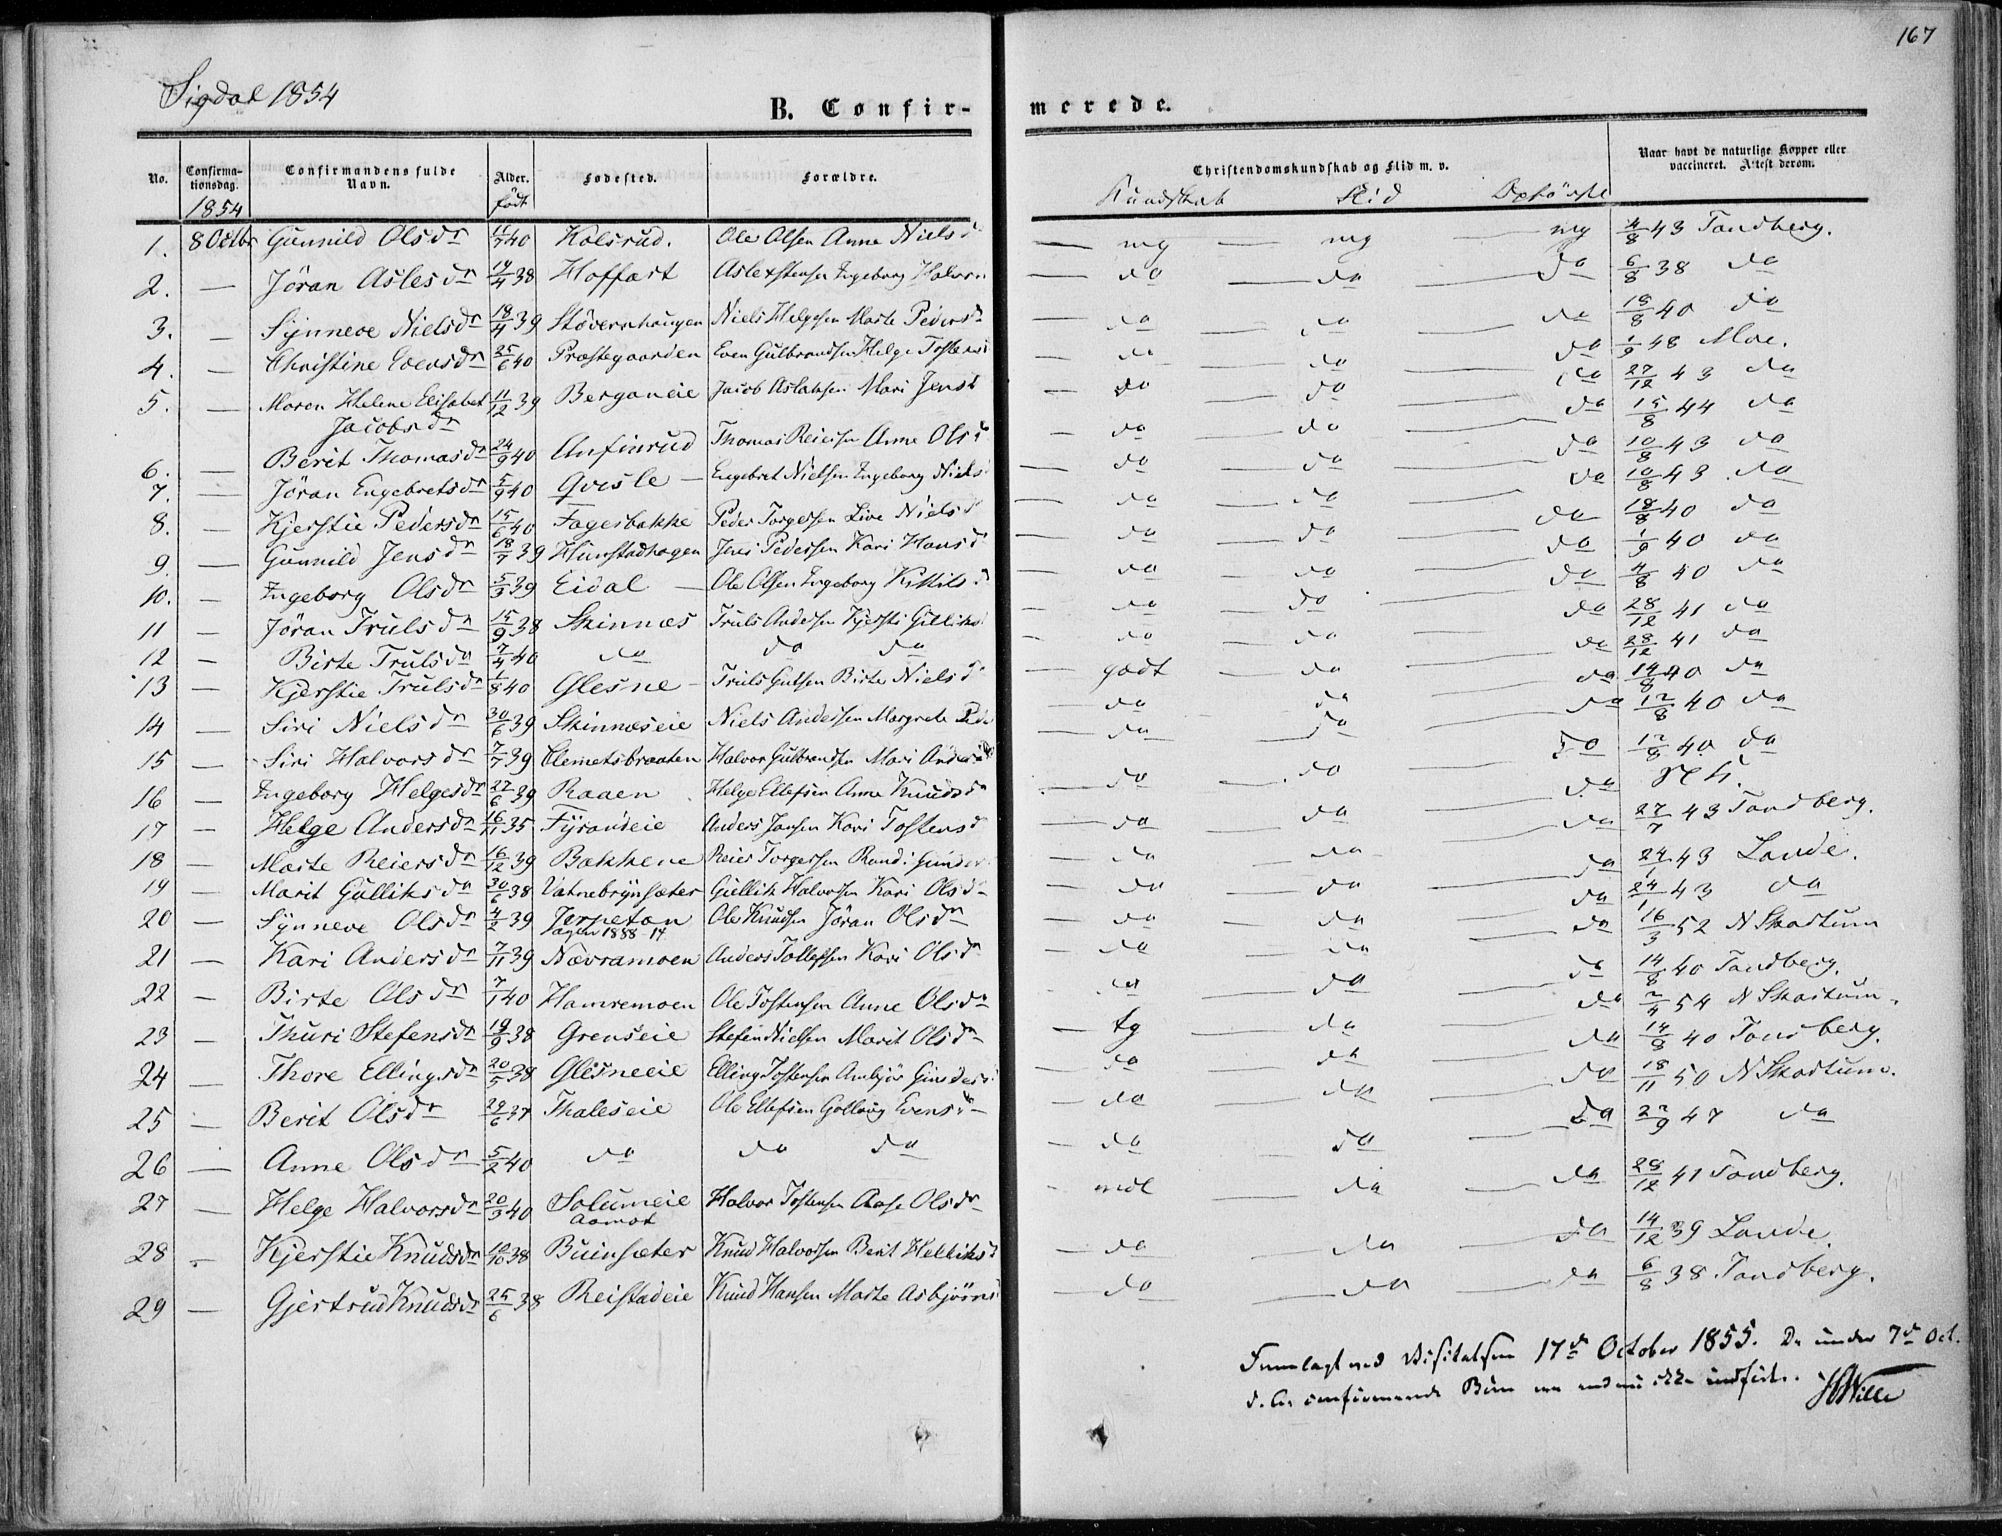 167
Sigdal 1854
B. Confirmerede.
No. Confirmationsdag. Confirmandens fulde Navn. Alder. Fødested. Forældre. Christendomskundskab og Flid m. v. Naar havt de naturlige Kopper eller vaccineret. Attest derom.
1854 født Kundskab Flid Opførsel
1. 8 Octbr Gunnild Olsdr 11/7 40 Kolsrud. Ole Olsen Anne Nielsd — mg — mg — mg 4/8 43 Tandberg.
2. — Jöran Aslesdr 14/4 38 Hoffart Asle Ingeborg — do — da — da 6/8 38 da
3. — Synneve Nielsdr 18/4 39 Stövernhaugen Niels Helgesen Marte Pedersd — da — da — da 18/8 40 da
4. — Christine Evensdr 25/6 40 Præstegaarden Even Gulbrandsen Helge Tostens — da — da — da 1/9 48 Moe.
5. — Maren Helene Elisabet 11/12 39 Berganeie Jacob Aslaksen Mari Jensd — do — da — da 27/12 43 da
Jacobsdr
6. — Berit Thomasdr 24/9 40 Anfinrud Thomas Reiersen Anne Olsd — da — da — da 15/8 44 da
7. — Jöran Engebretsdr 5/9 40 Gvisle — Engebret Nielsen Ingeborg Niels — da — da — da 10/8 43 da
8. — Kjerstie Pedersdr 15/6 40 Fagerbakke Peder Torgersen Live Nielsd — da — da — da 10/8 43 da
9. — Gunnild Jensdr 18/7 39 Hunstadhagen Jens Pedersen Kari Hansd — da — da — da 18/8 40 da
10. — Ingeborg Olsdr 5/3 39 Eidal — Ole Olsen Ingeborg Kittilsd — da — da — da 1/9 40 da
11 — Jöran Trulsdr 15/9 38 Skinnes Truls Andersen Kjersti Gulliks — da — do — da 4/8 40 da
12 — Birte Trulsdr 7/4 40 da do da — do — da — da 28/12 41 da
13 — Kjerstie Trulsdr 1/8 40 Glesne — Truls Gulsen Birte Nielsd — godt — da — da 28/12 41 da
14 — Siri Nielsdr 30/6 39 Skinneseie Niels Andersen Margrete Peder — da — da — da 14/8 40 da
15 — Siri Halvorsdr 7/7 39 Clemetsbraaten Halvor Gulbrandsen Mari Anders — da — da — do 12/8 40 da
16 — Ingeborg Helgesdr 27/6 39 Raaen Helge Ellefsen Anne Knudsd — do — do — da 12/8 40 da
17 — Helge Andersdr 16/11 35 Fyrandeie Anders Jansen Kari Tostensd — da — da — da 27/7 43 Tandberg.
18 — Marte Reiersdr 16/12 39 Bakkene Reier Torgersen Randi Gunder — da — da — da 24/1 43 Lande.
19 — Marit Gulliksdr 30/6 38 Vatnebrynsæter Gullik Halvorsen Kari Olsd — da — da — da 24/1 43 da
20 — Synneve Olsdr 4/2 39 Jerpetan Ole Knudsen Jöran Olsdr — da — da — da 16/3 52 N Skartum
1888-14
21 — Kari Andersdr 7/11 39 Nævramoen Anders Tollefsen Kari Olsd — da — da — do 14/8 40 Tandberg.
22 — Birte Olsdr 7/1 40 Hamremoen Ole Tostensen Anne Olsdr — da — da — da 2/4 54 N Skartum.
23 — Thuri Stefensdr 19/9 38 Grenseie Stefen Nielsen Marit Olsdr — tg — da — da 14/8 40 Tandberg.
24 — Thore Ellingsdr 20/5 38 Glesneeie Elling Tostensen Ambjör Gunders — da — da — do 18/11 50 N Skartum.
25 — Berit Olsdr 29/6 37 Thaleseie Ole Ellefsen Golloug Evensd — da — da — da 22/9 47 da
26 — Anne Olsdr 5/2 40 da da da — da — da — da 28/12 41 Tandberg.
27 — Helge Halvorsdr 20/3 40 Solumeie Halvor Tostensen Aase Olsdr — mdl — da
aamot
28 — Kjerstie Knudsdr 10/10 38 Buinsæter Knud Halvorsen Berit Helliksd — da — da — da 14/12 39 Lande.
29 — Gjertrud Knudsdr 25/6 38 Reistadeie Knud Hansen Marte Asbjørns — do — da — da 6/8 38 Tandberg.
Fremlagt ved Visitatsen 17de October 1855. De under 7de Oct.
d. A. confirmerede Børn ere endnu ikke indførte. Wille